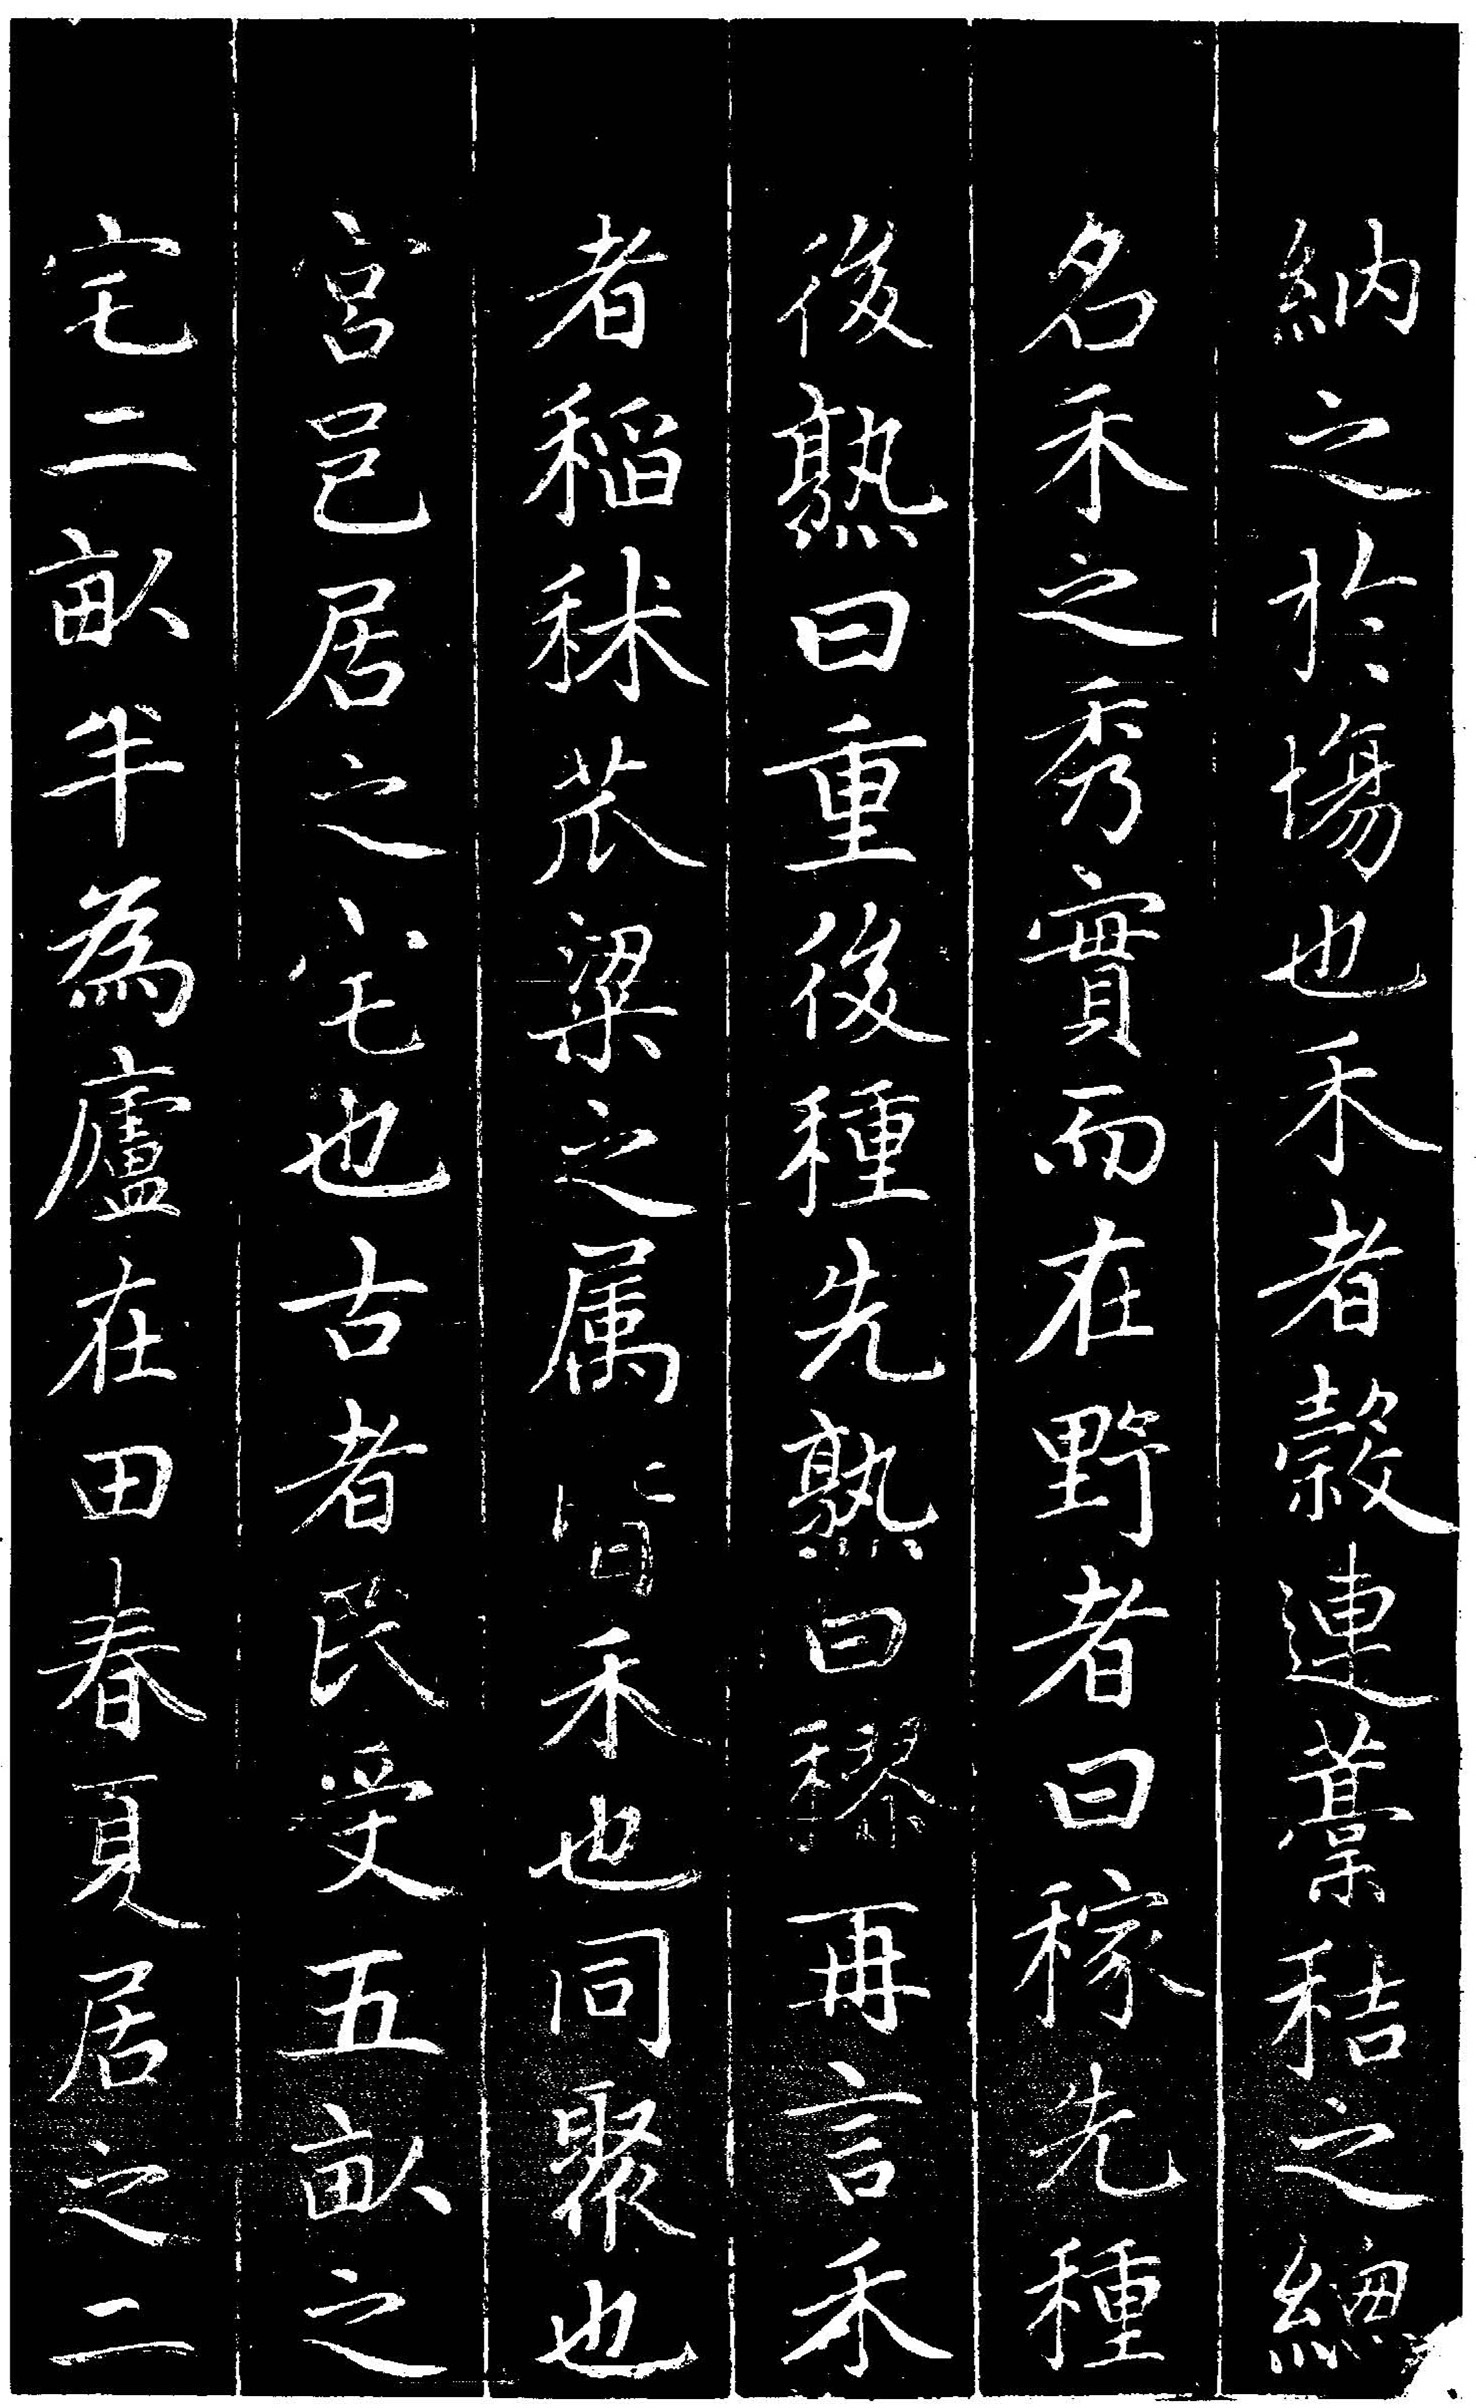 納之於場也禾者穀連藁秸之總
名禾之秀實而在野者曰稼先種
後熟曰重後種先熟曰穋再言禾
者稻秫苽粱之属皆禾也同聚也
宮邑居之宅也古者民受五畝之
宅二畝半為廬在田春夏居之二